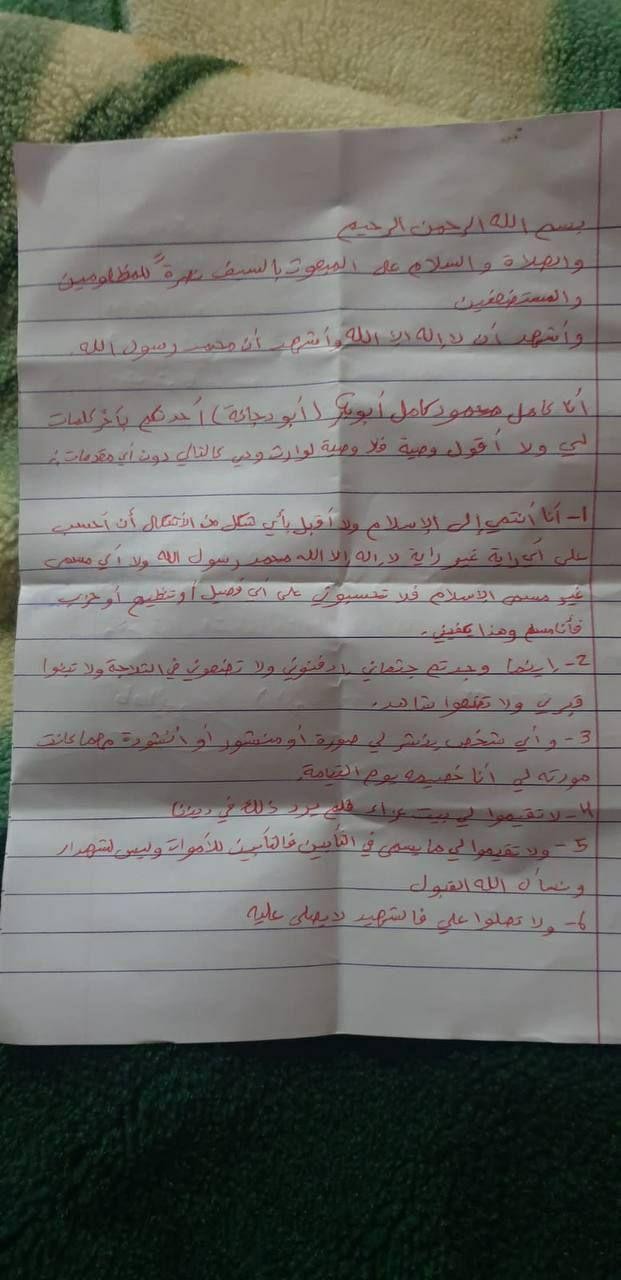 بسم الله الرحمن الرحيم
والصلاة والسلام على المبعوث بالسيف نصرةً للمظلومين
والمستضعفين
وأشهد أن لا إله إلا الله وأشهد أن محمد رسول الله.
أنا كامل محمود كامل أبوبكر (أبو دجانة) أحدثكم بآخر كلمات
لي ولا أقول وصية فلا وصية لوارث وهي كالتالي دون أي مقدمات :
1- أنا أنتمي إلى الإسلام ولا أقبل بأي شكل من الأشكال أن أحسب
على أي راية غير راية لا إله إلا الله محمد رسول الله ولا أي مسمى
غير مسمى الإسلام فلا تحسبوني على أي فصيل أو تنظيم أو حزب
فأنا مسلم وهذا يكفيني.
2- أينما وجدتم جثماني إدفنوني ولا تضعوني في الثلاجة ولا تبنوا
قبري ولا تضعوا شاهد.
3- وأي شخص ينشر لي صورة أو منشور أو أنشودة مهما كانت
مورته لي أنا خصيمه يوم القيامة.
4- لا تقيموا لي بيت عزاء فلم يرد ذلك في ديننا
5- ولا تقيموا لي ما يسمى في التأبين فالتأبين للأموات وليس لشهداء
ونسأل الله القبول
6- ولا تصلوا علي فالشهيد لا يصلى عليه